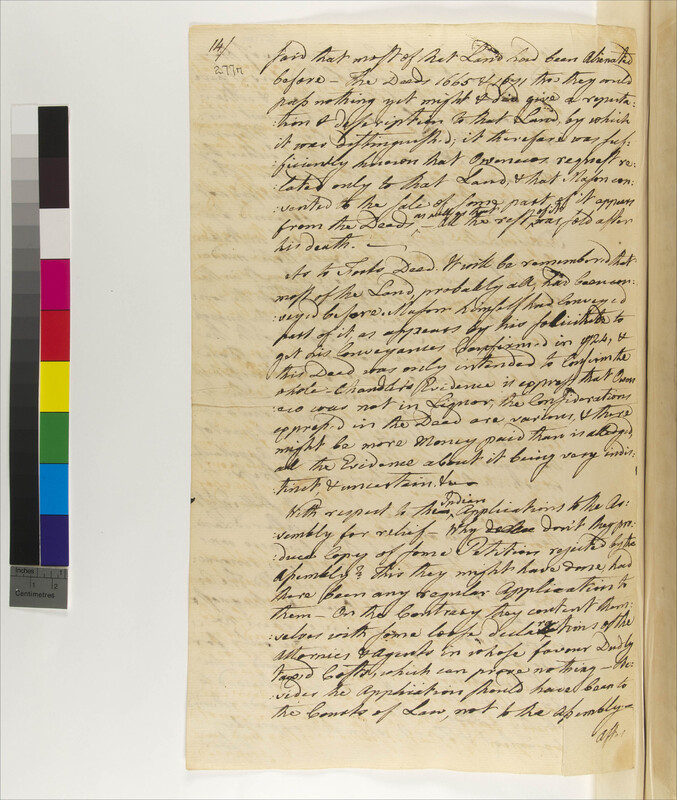 14/
277r
said that most of that Land had been Alienated
before – The Deeds 1665 & 1671 tho they could
pass nothing yet might & did give a reputa:
:tion & description to that Land, by which
it was Distinguish'd; it therefore was suf:
:ficiently known that Owenecos request re:
:lated only to that Land, & that Mason con:
:sented to the Sale of some part of it appears
from the Deeds, as well as that – all the rest of it was sold after
his death. –
As to Deed it will be remembered that
most of the Land, probably all, had been con:
:veyed before. Mason himself had Conveyed
part of it, as appears by his solicitude to
get his Conveyances Confirmed in 1724, &
this Deed was only intended to Confirm the
whole – Chandlers Evidence is express that Owen
eco was not in Liquor, the Considerations
express'd in the Deed are various, & there
might be more Money paid than is alledged,
all the Evidence about it being very indis:
:tinct, & uncertain. &c
With respect to the Indian Applications to the As:
:sembly for relief – Why don't they pro:
:duce Copy of some Petition rejected by the
Assembly? this they might have done had
there been any regular Application to
them – On the Contrary they content them:
:selves with some loose declarations of the
Attornies & Agents in whose favour Dudly
taxed Costs, which can prove nothing – Be:
:sides the Application should have been to
the Courts of Law, not to the Assembly –